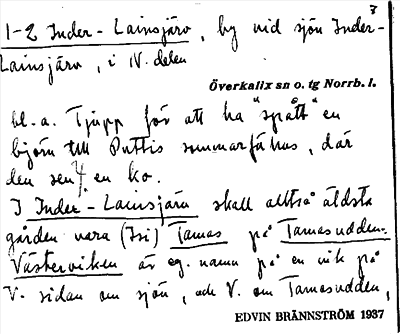 3
1-2 Inder-Lainsjärv, by vid sjön Inder-
Lainsjärv, i N. delen
Överkalix sn o. tg Norrb. l.
bl. a. Tjupp för att ha "spått" en
björn till Puttis sommarfähus, där
den sen en ko.
I Inder-Lainsjärv skall alltså äldsta
gården vara (Isi) Tamas på Tamasudden.
Västerviken är eg. namn på en vik på
V. sidan om sjön, och V. om Tamasudden,
EDVIN BRÄNNSTRÖM 1937